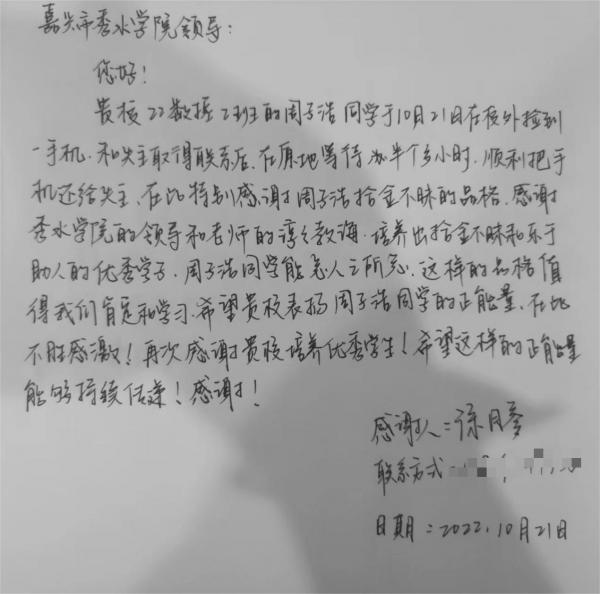 嘉兴市秀水学院领导:
您好!
贵校22数据2班的周子浩同学于10月21日在校外捡到
一手机.和失主取得联系后.在原地等待近半个多小时.顺利把手
机还给失主.在此特别感谢周子浩拾金不昧的品格.感谢
秀水学院的领导和老师的谆谆教诲.培养出拾金不昧和乐于
助人的优秀学子.周子浩同学能急人之所急.这样的品格值
得我们肯定和学习.希望贵校表扬周子浩同学的正能量.在此
不胜感激!再次感谢贵校培养优秀学生!希望这样的正能量
能够持续传递!感谢!
感谢人:徐月
联系方式
日期:2022.10月21日